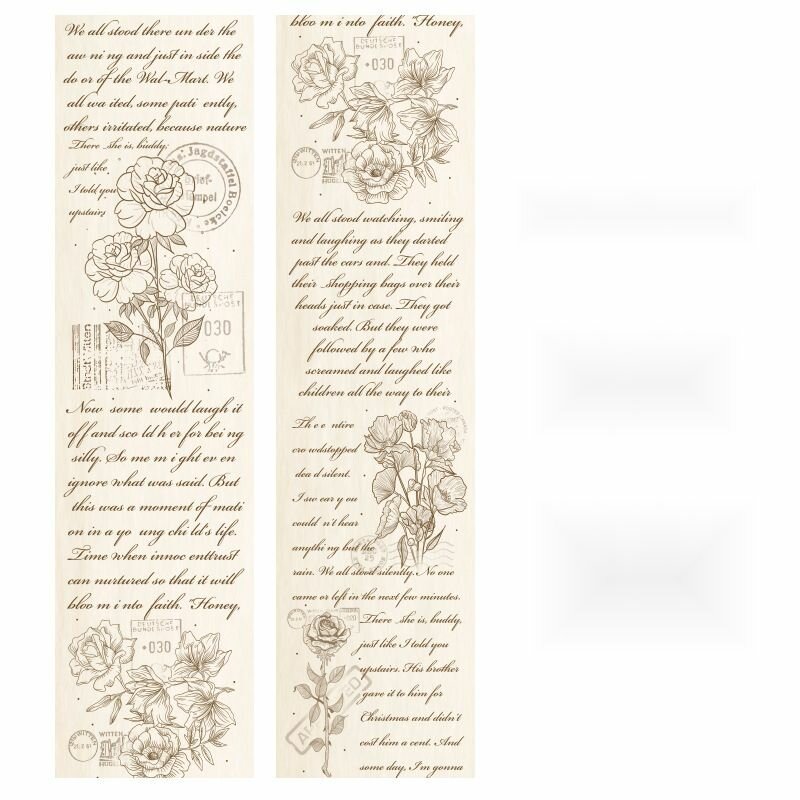 We all stood there un der the
aw ni ng and just in side the
do or of the Wal-Mart. We
all wa ited, some pati ently,
others irritated, because nature
There she is, buddy,
just like
I told you
upstairs
s. Jagdstaffel Boelcke
Brief-
stempel
DEUTSCHE
BUNDESPOST
030
Witten
Now some would laugh it
off and sco ld h er for bei ng
silly. So me m i ght ev en
ignore what was said. But
this was a moment of mati
on in a yo ung chi ld's life.
Time when innoc enttrust
can nurtured so that it will
bloo m i nto faith. "Honey,
DEUTSCHE
BUNDESPOST
·030
WITTEN
WITTEN
bloo m i nto faith. "Honey,
DEUTSCHE
BUNDESPOST
·030
WITTEN
WITTEN
We all stood watching, smiling
and laughing as they darted
past the cars and. They held
their shopping bags over their
heads just in case. They got
soaked. But they were
followed by a few who
screamed and laughed like
children all the way to their
Th e e ntire
cro wdstopped
dea d silent.
I sw ear y ou
could n't hear
anythi ng but the
rain. We all stood silently. No one
came or left in the next few minutes.
There she is, buddy,
just like I told you
upstairs. His brother
gave it to him for
Christmas and didn't
cost him a cent. And
some day, I'm gonna